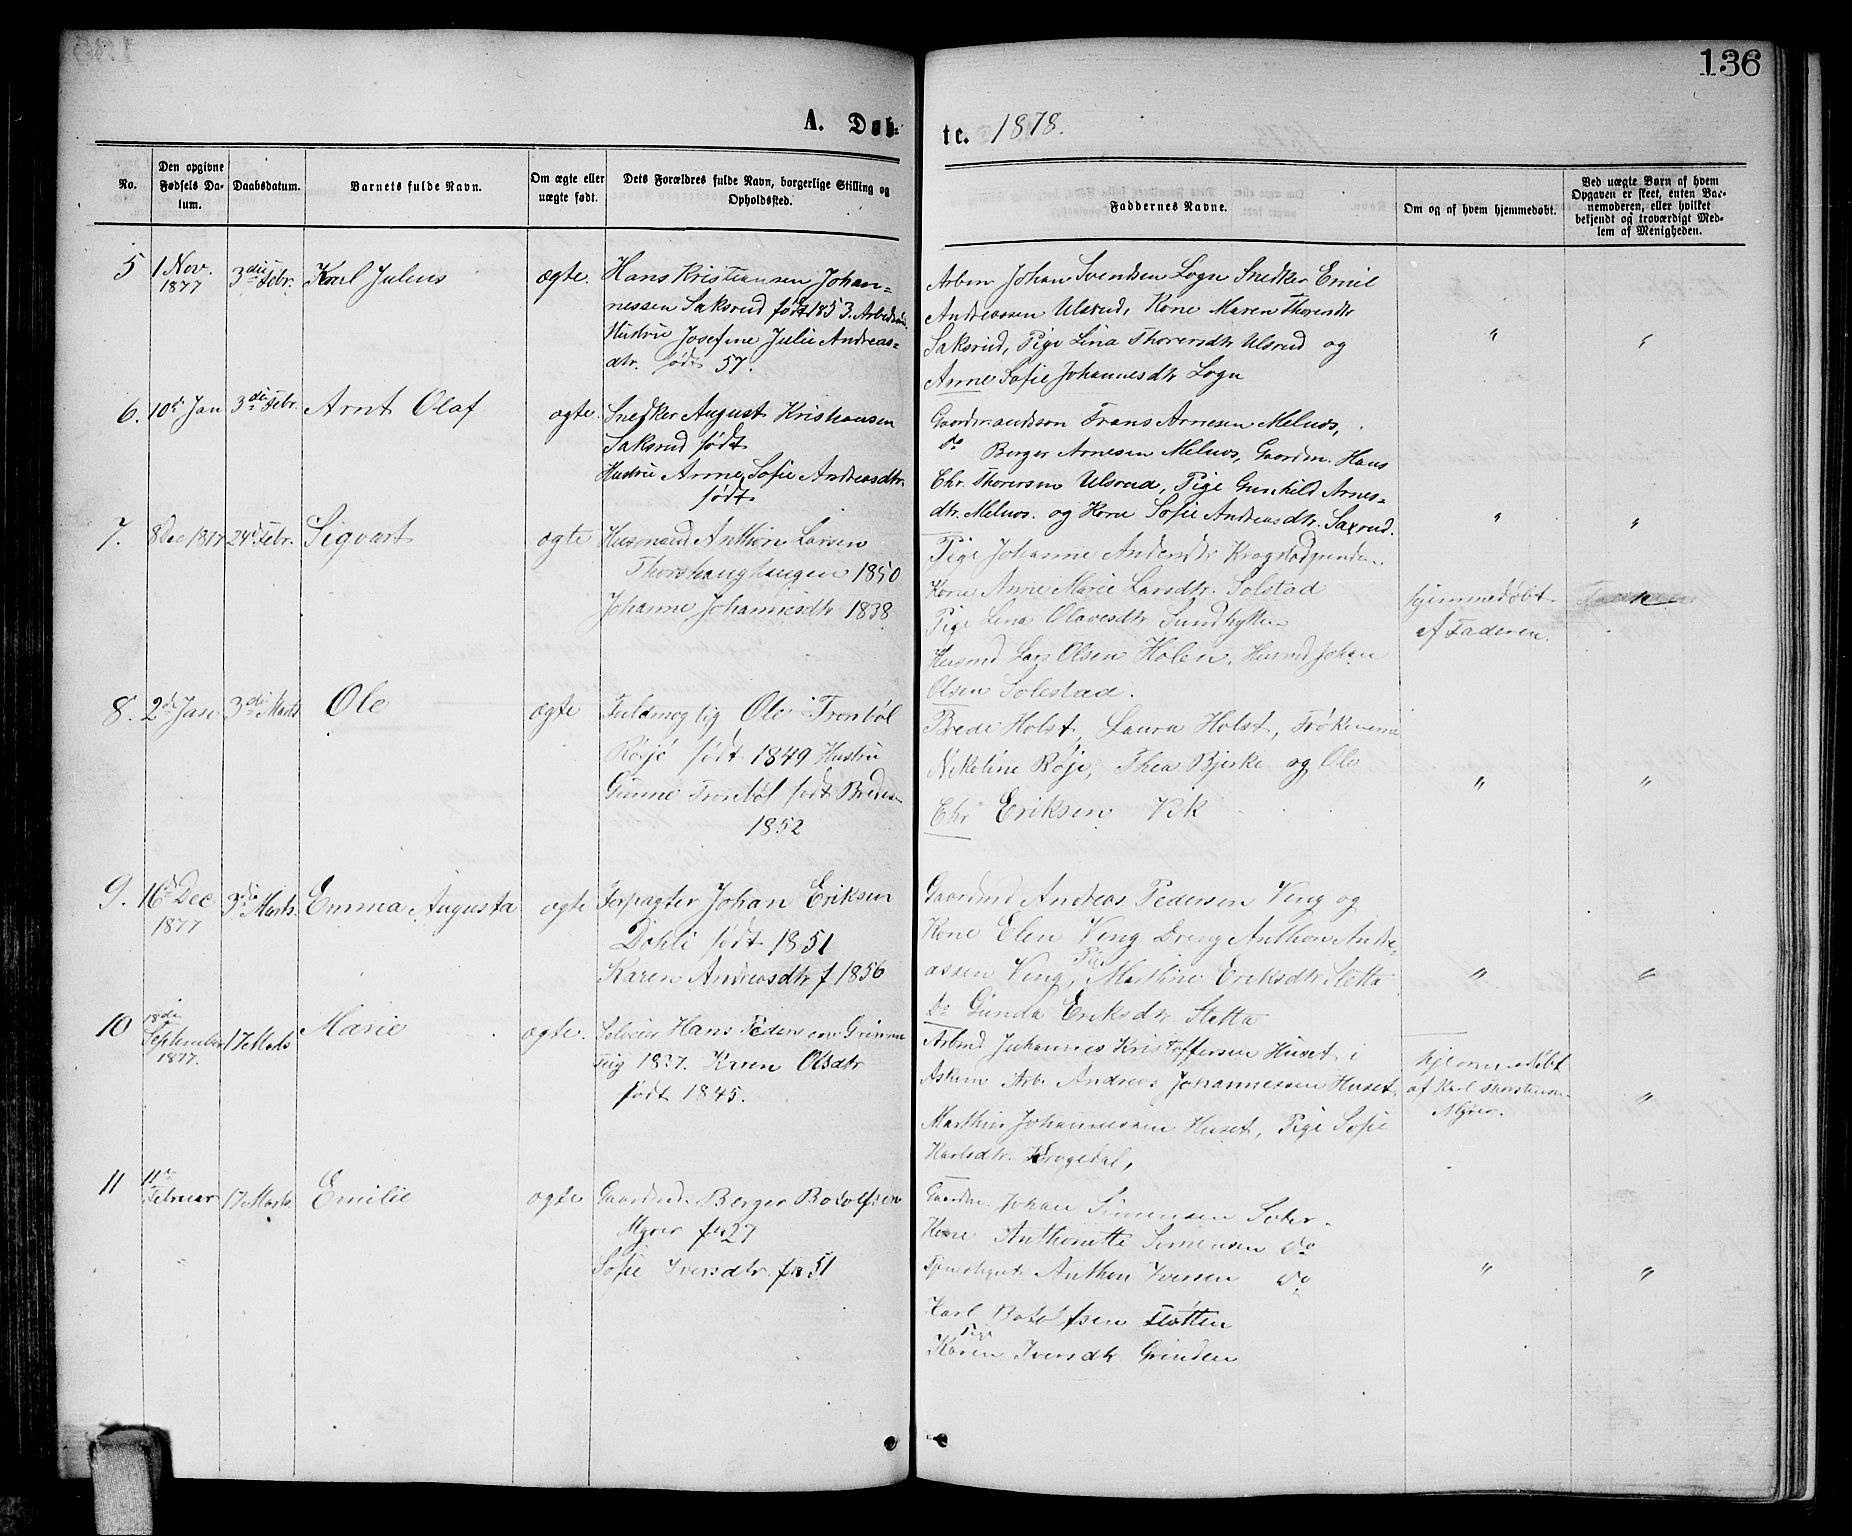 136
A. Døb-
te. 1878.
No.
Den opgivne Fødsels Da-
tum.
Daabsdatum.
Barnets fulde Navn.
Om ægte eller
uægte født.
Dets Forældres fulde Navn, borgerlige Stilling og
Opholdssted.
Faddernes Navne.
Om og af hvem hjemmedøbt.
Ved uægte Børn af hvem
Opgaven er skeet, enten Bar-
nemoderen, eller hvilket
bekjendt og troværdigt Med-
lem af Menigheden.
5 1 Nov. 1877 3die Febr. Karl Julius ægte.
Hans Kristiansen Johan-
nessen Saksrud født 1853. Arbeds
Hustru Josefine Julie Andreas-
dtr. født 57.
Arbm. Johan Svendsen Logn Snedker Emil
Andreassen Ulsrud, Kone Maren Thorersdtr
Saksrud, Pige Lina Thorersdtr Ulsrud og
Anne Sofie Johannesdtr Logn
" "
6. 10de Jan 3die Febr. Arnt Olaf ægte.
Snedker August Kristiansen
Saksrud født
Hustru Anne Sofie Andreasdtr.
født
Gaardmandssøn Frans Arnesen Melnos,
do Berger Arnesen Melnos, Gaardm. Hans
Chr. Thorersen Ulsrud, Pige Gunhild Arnes-
dtr. Melnos. og Kone Sofie Andreasdtr. Saxrud.
" "
7. 8 Dec 1877 24de Febr. Sigvart ægte
Husmand Anthon Larsen
Thorshaughaugen 1850
Johanne Johannesdtr 1838
Pige Johanne Andersdtr Kragstadgrinden
Kone Anne Marie Larsdtr. Solstad
Pige Lina Olavesdtr Sundhytten
Husmd Lars Olsen Holen, Husmd Johan
Olsen Solestad.
hjemmedøbt
af Faderen.
8. 2de Jan 3die Marts Ole ægte
Fuldmægtig Ole Tronbøl
Røjé født 1849 Hustru
Gunne Tronbøl født Bredesen
1852
Brede Holst, Laura Holst, Frøknerne
Nikoline Røje, Thea Bjerke og Ole
Chr Eriksen Vik
" "
9. 16de Dec 1877 3die Marts. Emma Augusta ægte
Forpagter Johan Eriksen
Dahli født 1851
Karen Andreasdtr f 1856
Gaardmd Andreas Pedersen Ving og
Kone Elen Ving Dreng Anthon Andre-
assen Ving, Pige Marthine Eriksdtr Sletta
Do Gunda Eriksdtr Sletta
" "
10 18de September 1877. 17 Marts Marie ægte.
Selveier Hans Pedersen Grimm
teig 1837. Karen Olsdtr
født 1845.
Arbmd Johannes Kristoffersen Huset i
Askim Arb. Andreas Johannessen Huset
Marthin Johannessen Huset, Pige Sofie
Karlsdtr. Krogedal,
hjemmedøbt
af Karl Thorstensen
Myrer.
"
11 11te Februar 17 Marts. Emilie ægte
Gaardmd. Berger Botolfsen
Myrer fø 27
Sofie Iversdtr. fø 51
Gaardm. Johan Simensen Soter.
Kone Anthonette Simensen do
Tjenestegut Anthon Iversen do
Karl Botolfsen Sletten
Pige Karen Iversdtr. Grinden
" "